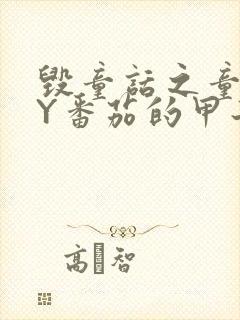 毁童话之童
Y番茄的甲
高 智